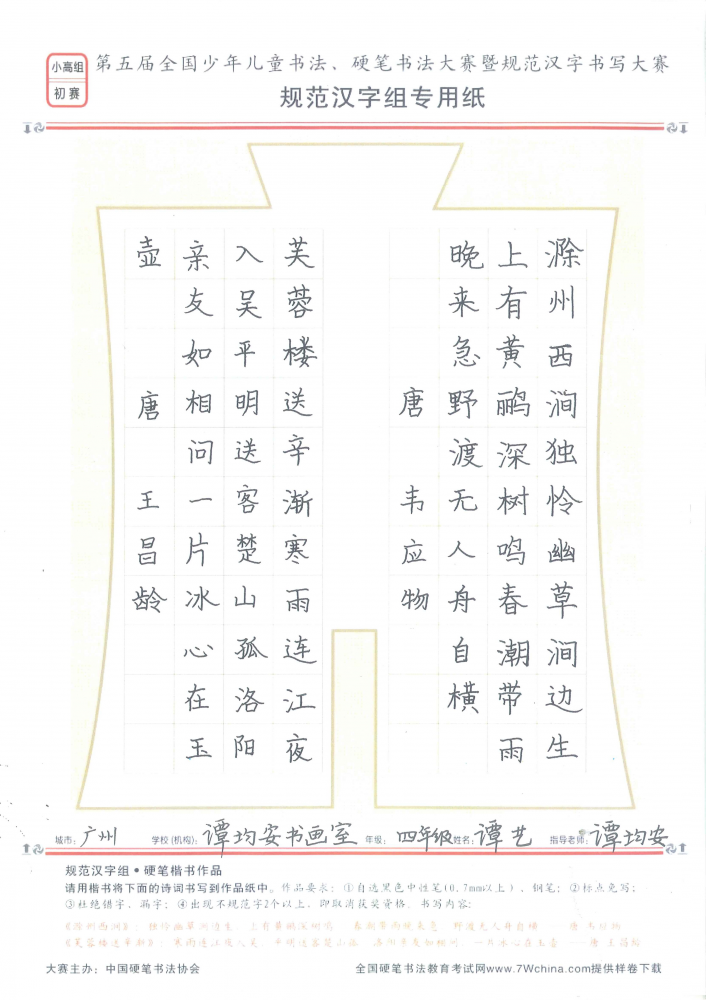 小高组
初赛
第五届全国少年儿童书法、硬笔书法大赛暨规范汉字书写大赛
规范汉字组专用纸
滁州西涧独怜幽草涧边生
上有黄鹂深树鸣春潮带雨
晚来急野渡无人舟自横
唐 韦应物
芙蓉楼送辛渐寒雨连江夜
入吴平明送客楚山孤洛阳
亲友如相问一片冰心在玉
壶 唐 王昌龄
城市：广州 学校(机构)：谭均安书画室 年级：四年级 姓名：谭艺 指导老师：谭均安
规范汉字组·硬笔楷书作品
请用楷书将下面的诗词书写到作品纸中。作品要求：①自选黑色中性笔(0.7mm以上)、钢笔；②标点免写；
③杜绝错字、漏字；④出现不规范字2个以上，即取消获奖资格。书写内容：
《滁州西涧》：独怜幽草涧边生，上有黄鹂深树鸣。春潮带雨晚来急，野渡无人舟自横。——唐 韦应物
《芙蓉楼送辛渐》：寒雨连江夜入吴，平明送客楚山孤。洛阳亲友如相问，一片冰心在玉壶。——唐 王昌龄
大赛主办：中国硬笔书法协会
全国硬笔书法教育考试网www.7Wchina.com提供样卷下载